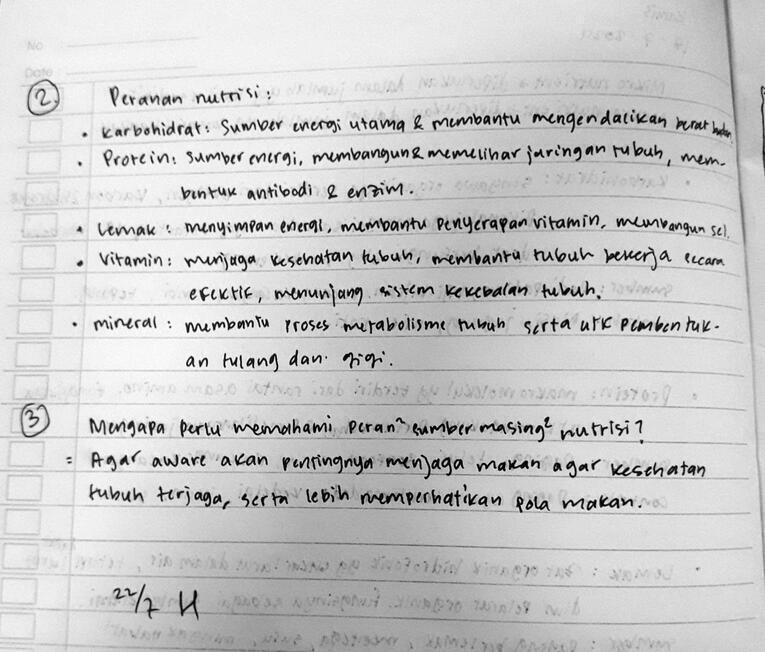 No
Date
② Peranan nutrisi :
• Karbohidrat : Sumber energi utama & membantu mengendalikan berat badan
• Protein : sumber energi, membangun & memelihar jaringan tubuh, mem-
bentuk antibodi & enzim.
• Lemak : menyimpan energi, membantu penyerapan vitamin, membangun sel.
• Vitamin : menjaga kesehatan tubuh, membantu tubuh bekerja secara
efektif, menunjang sistem kekebalan tubuh.
• mineral : membantu proses metabolisme tubuh serta utk pembentuk-
an tulang dan gigi.
③ Mengapa perlu memahami peran² sumber masing² nutrisi?
= Agar aware akan pentingnya menjaga makan agar kesehatan
tubuh terjaga, serta lebih memperhatikan pola makan.
22/7